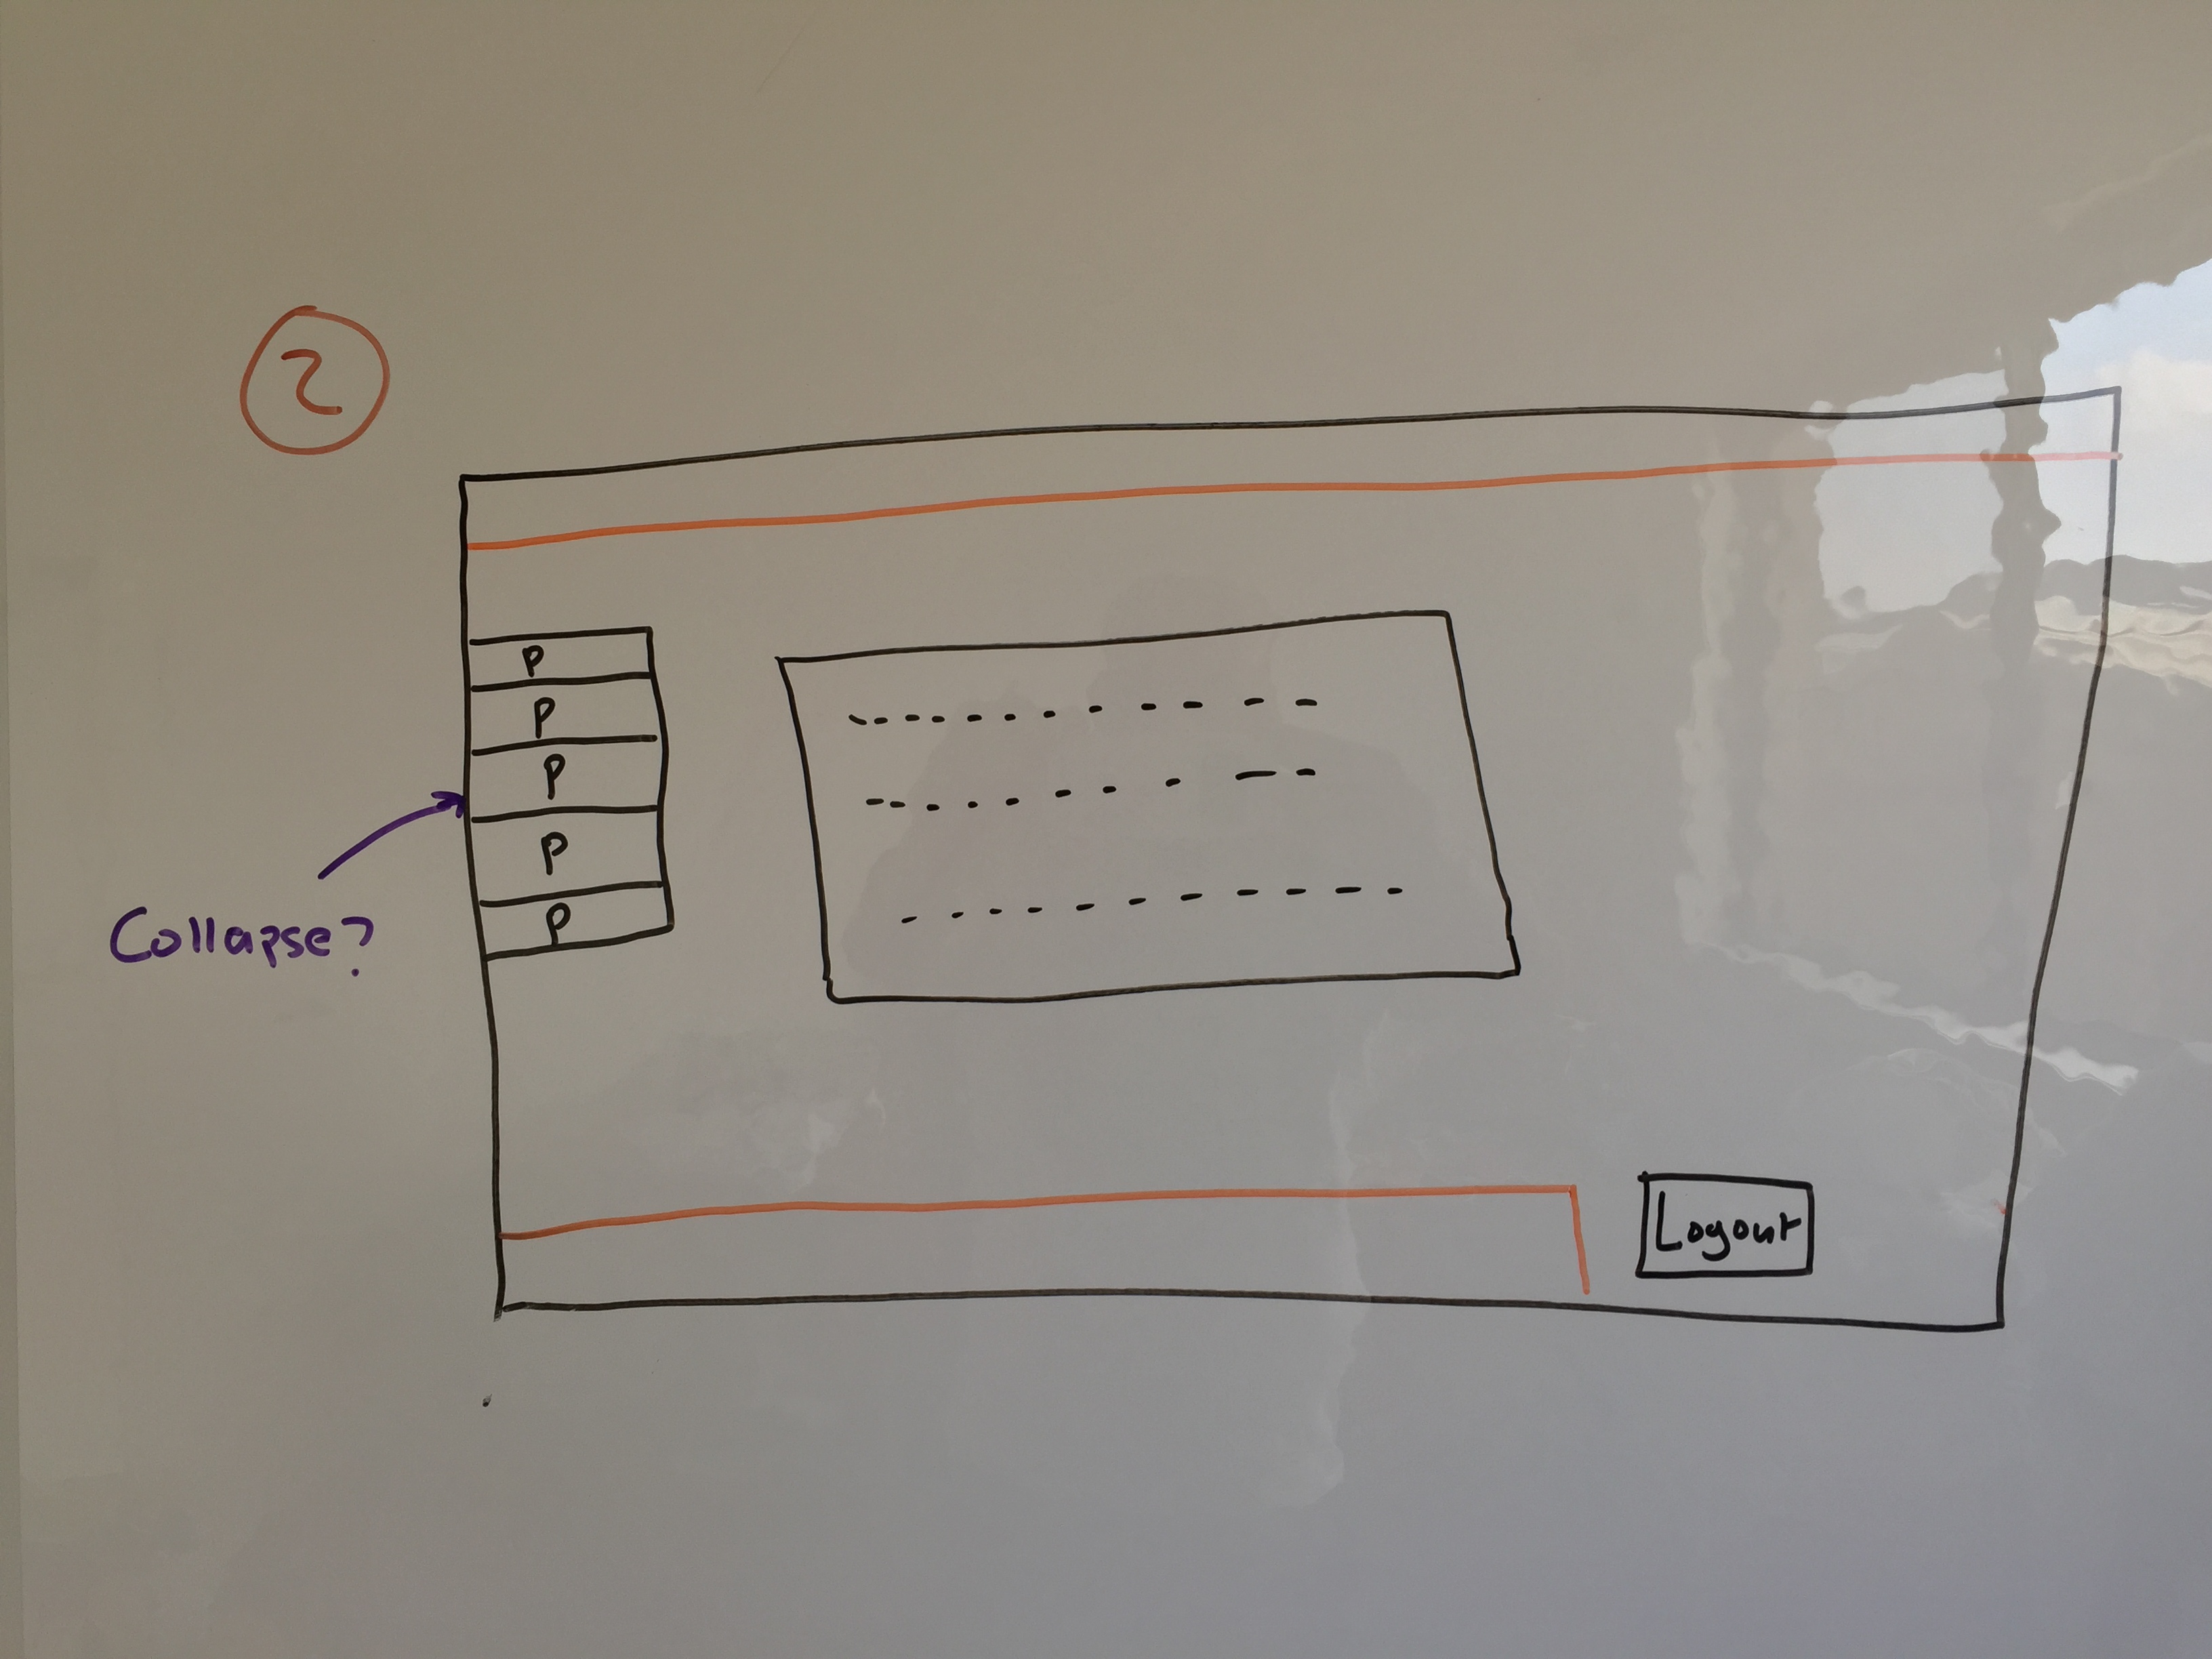 2
P
P
P
P
P
Collapse?
Logout